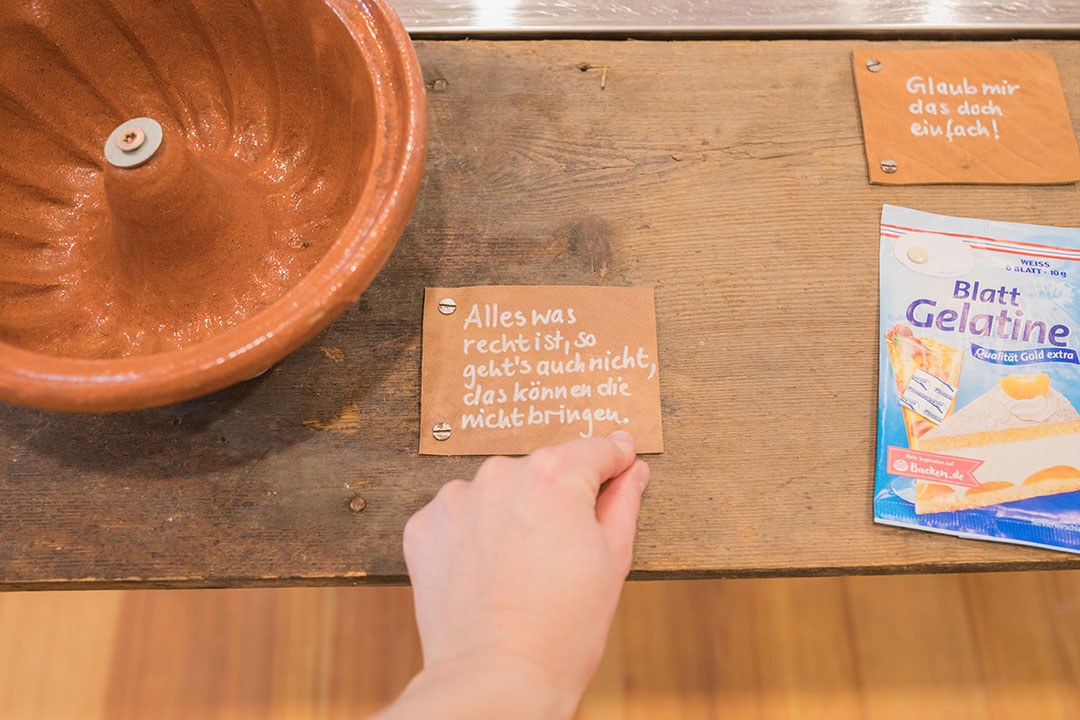 Alles was
recht ist, so
geht's auch nicht,
das können die
nicht bringen.
Glaub mir
das doch
einfach!
WEISS
6 BLATT - 10 g
Blatt
Gelatine
Qualität Gold extra
Backen.de